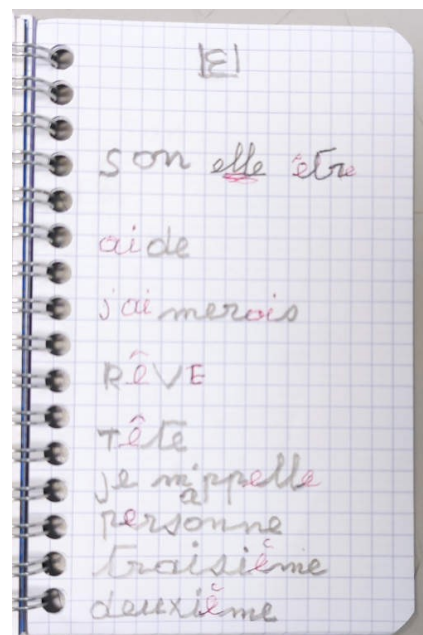 |ε|
son elle être
aide
j'aimerais
RÊVE
TÊTE
je m'appelle
personne
traisième
deuxième